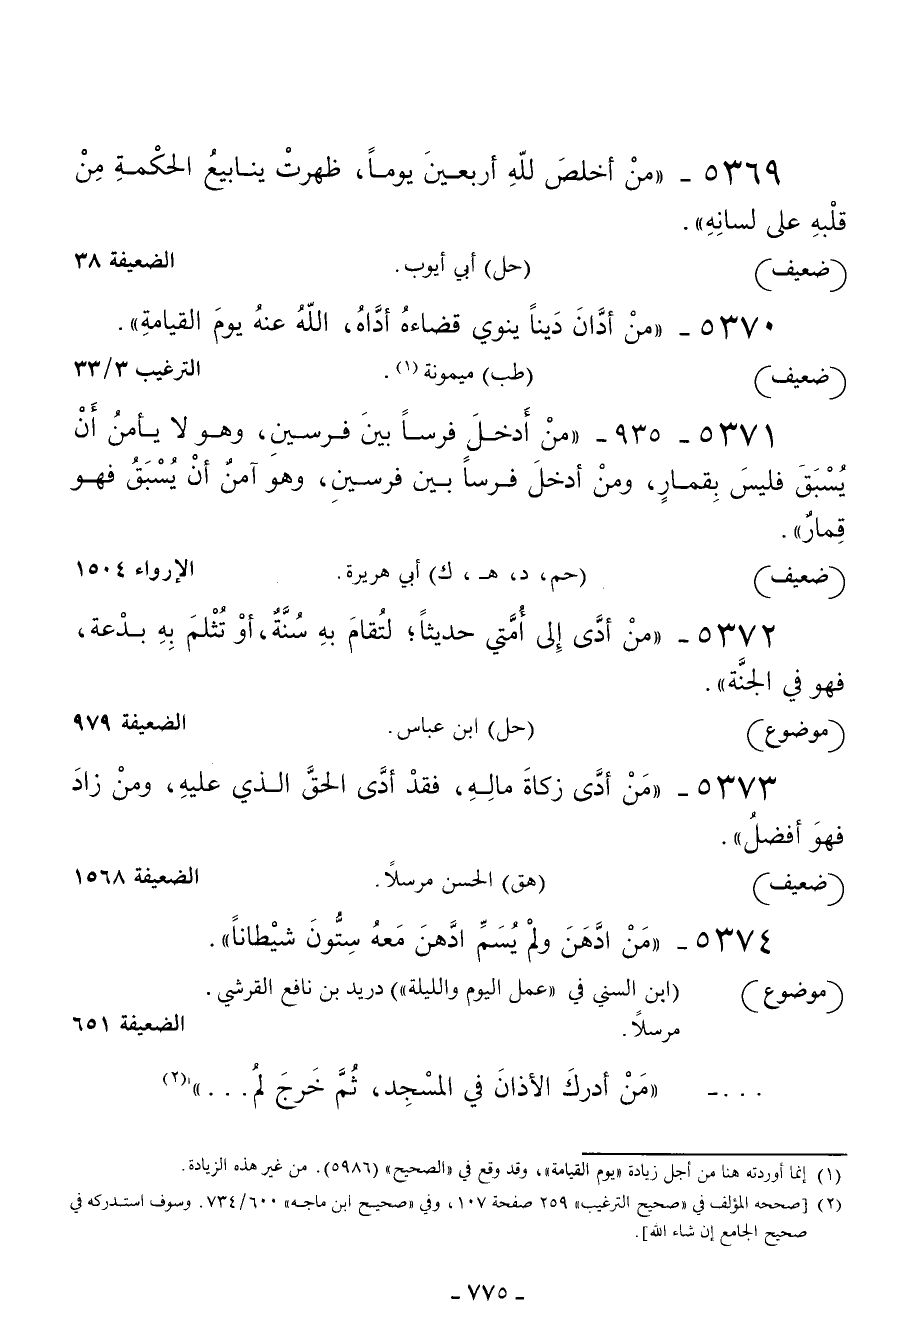 ٥٣٦٩ ـ «منْ أخلصَ للّهِ أربعـينَ يومـاً، ظهرتْ ينـابيعُ الحكْمـةِ مِنْ
قلْبهِ على لسانِهِ» .
(ضعيف) (حل) أبي أيوب . الضعيفة ٣٨
٥٣٧٠ ـ «منْ أدَّانَ دَيناً ينوي قضاءهُ أدَّاهُ، اللّهُ عنهُ يومَ القيامةِ» .
(ضعيف) (طب) ميمونة (١) . الترغيب ٣٣/٣
٥٣٧١ ـ ٩٣٥ ـ «منْ أَدخـلَ فرسـاً بينَ فـرسـينِ، وهـو لا يـأمنُ أَنْ
يُسْبَقَ فليسَ بِقمـارٍ، ومنْ أدخلَ فـرساً بـين فرسـينِ، وهوَ آمنٌ أنْ يُسْبَقُ فهـو
قِمارٌ» .
(ضعيف) (حم، د، هـ ، ك) أبي هريرة . الإرواء ١٥٠٤
٥٣٧٢ ـ «منْ أدَّى إِلى أُمَّتي حديثاً؛ لتُقامَ بهِ سُنَّةٌ، أوْ تُثْلمَ بِهِ بـدْعة،
فهو في الجنَّة» .
(موضوع) (حل) ابن عباس . الضعيفة ٩٧٩
٥٣٧٣ ـ «مَنْ أدَّى زكاةَ مالِـهِ، فقدْ أدَّى الحقَّ الـذي عليهِ، ومنْ زادَ
فهوَ أفضلُ» .
(ضعيف) (هق) الحسن مرسلًا . الضعيفة ١٥٦٨
٥٣٧٤ ـ «مَنْ ادَّهَنَ ولمْ يُسَمِّ ادَّهنَ مَعهُ ستُّونَ شيْطاناً» .
(موضوع) (ابن السني في «عمل اليوم والليلة») دريد بن نافع القرشي .
مرسلًا . الضعيفة ٦٥١
. . . ـ «مَنْ أدركَ الأذانَ في المسْجِد، ثُمَّ خَرجَ لمُ . . .»(٢)
(١) إنما أوردته هنا من أجل زيادة «يوم القيامة»، وقد وقع في «الصحيح» (٥٩٨٦). من غير هذه الزيادة.
(٢) [صححه المؤلف في «صحيح الترغيب» ٢٥٩ صفحة ١٠٧، وفي «صحيـح ابن ماجـه» ٧٣٤/٦٠٠. وسوف استـدركه في
صحيح الجامع إن شاء الله].
ـ ٧٧٥ ـ